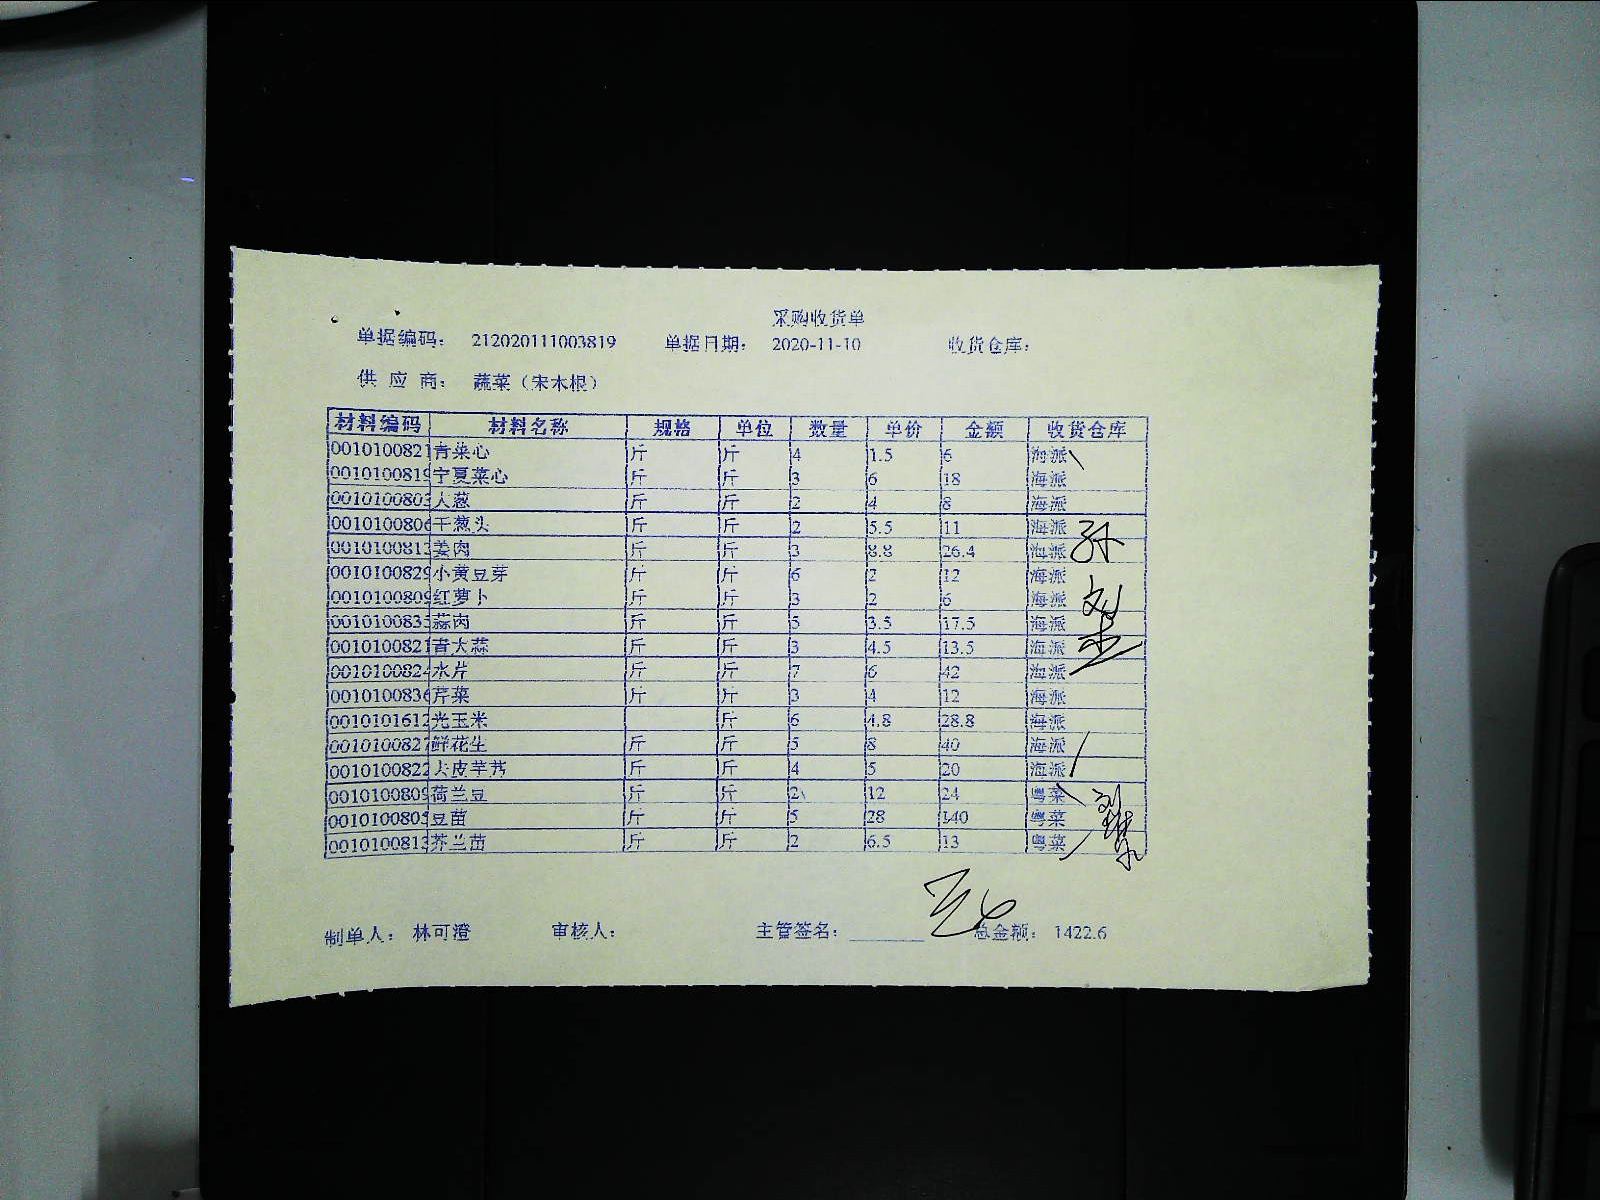 采购收货单
单据编码： 212020111003819 单据日期： 2020-11-10 收货仓库：
供 应 商： 蔬菜（宋木根）
材料编码 材料名称 规格 单位 数量 单价 金额 收货仓库
0010100821 青菜心 斤 斤 4 1.5 6 海派
001010081 宁夏菜心 斤 斤 3 6 18 海派
001010080 大葱 斤 斤 2 4 8 海派
001010080 干葱头 斤 斤 2 5.5 11 海派
001010081 姜肉 斤 斤 3 8.8 26.4 海派
001010082 小黄豆芽 斤 斤 6 2 12 海派
001010080 红萝卜 斤 斤 3 2 6 海派
001010083 蒜肉 斤 斤 5 3.5 17.5 海派
0010100821 青大蒜 斤 斤 3 4.5 13.5 海派
001010082 斤 斤 7 6 42 海派
001010083 芹菜 斤 斤 3 4 12 海派
0010101612 光玉米 斤 6 4.8 28.8 海派
001010082 鲜花生 斤 斤 5 8 40 海派
0010100822 斤 斤 4 5 20 海派
001010080 荷兰豆 斤 斤 2 12 24 粤菜
001010080 豆苗 斤 斤 5 28 140 粤菜
001010081 芥兰苗 斤 斤 2 6.5 13 粤菜
制单人： 林可澄 审核人： 主管签名： 总金额： 1422.6